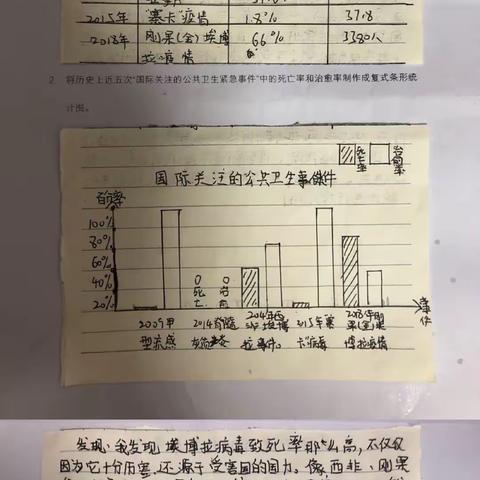 2015年 "寨卡"疫情 1.8% 3718
2018年 刚果(金)埃博 66% 3380人
拉疫情
2 将历史上近五次"国际关注的公共卫生紧急事件"中的死亡率和治愈率制作成复式条形统
计图。
死亡率 治愈率
国际关注的公共卫生事件
百分率
100%
80%
60%
40%
20%
0死亡
0治愈
事件
2009甲
型流感
2014脊髓
2014年西
非埃博
拉事件
2015年寨
卡病毒
2018年刚
果(金)埃
博拉疫情
发现:我发现埃博拉病毒致死率那么高,不仅仅
因为它十分厉害,还源于受害国的国力,像西非、刚果